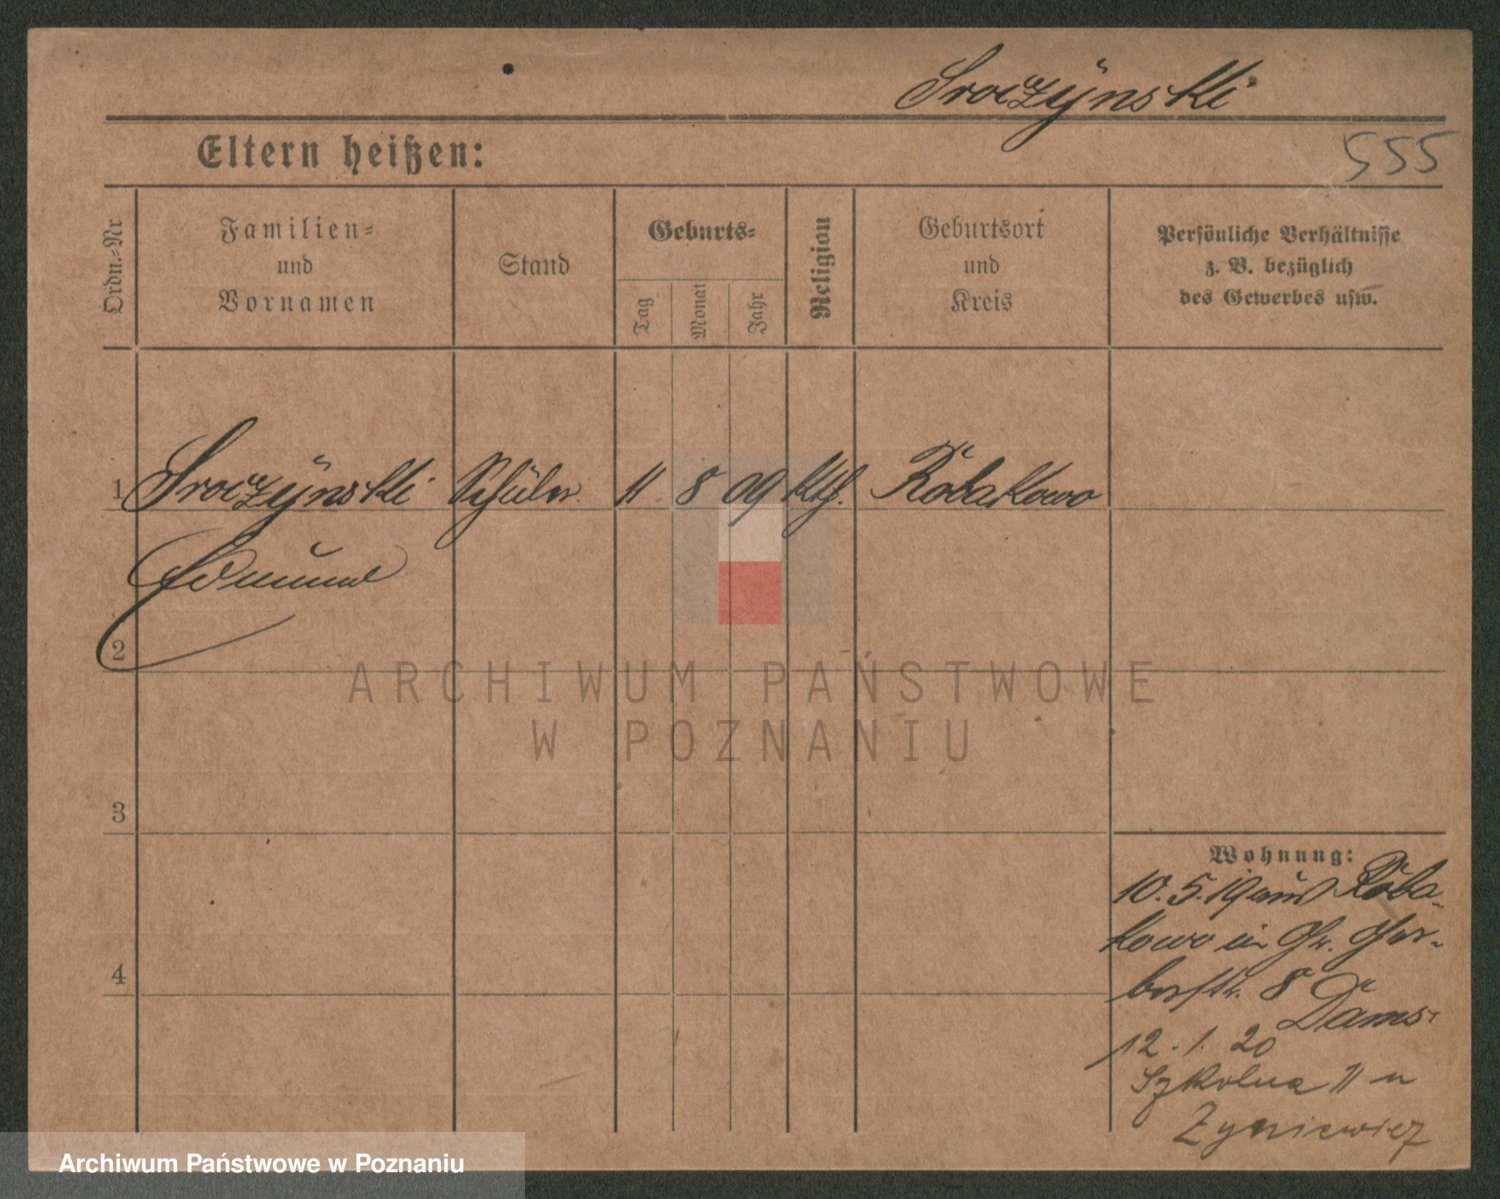 Sroczyński
555
Eltern heißen:
Ordn.-Nr
Familien-
und
Vornamen
Stand
Geburts-
Tag
Monat
Jahr
Religion
Geburtsort
und
Kreis
Persönliche Verhältnisse
z. B. bezüglich
des Gewerbes usw.
1 Sroczyński Schüler 11 8 09 kth. Robakowo
Edmund
2
ARCHIWUM PAŃSTWOWE
W POZNANIU
3
4
Wohnung:
10.5.19 aus Roba-
kowo in Gr. Ger-
berstr. 8
12.1.20
Szkolna 11 u
Archiwum Państwowe w Poznaniu